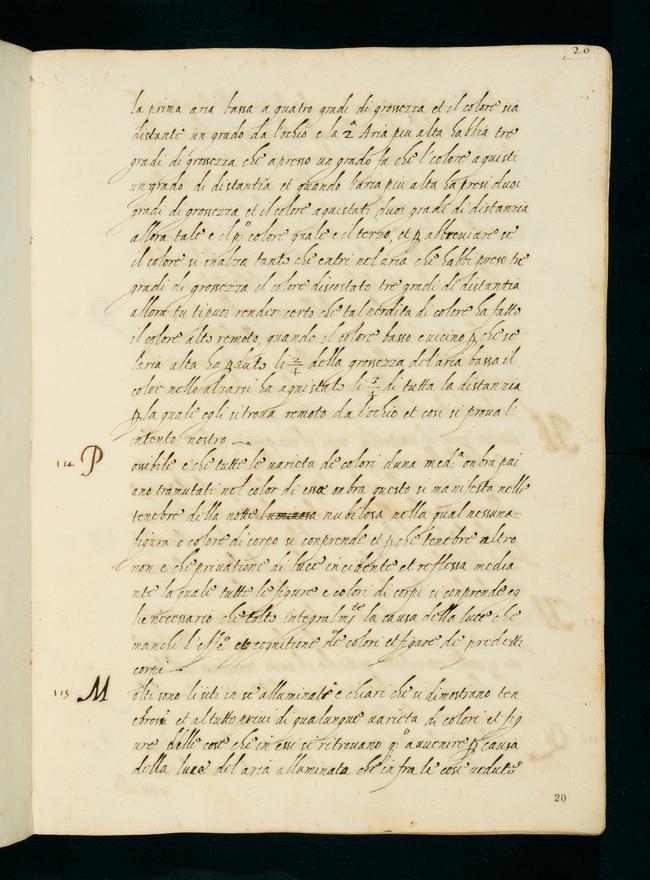 20
la prima aria bassa a quatro gradi di grossezza et il colore sia
distante un grado da l'ochio e la 2.ª Aria piu alta habbia tre
gradi di grossezza che apresso un grado fa che l'colore aquisti
un grado di distantia et quando l'aria piu alta ha presi duoi
gradi di grossezza et il colore aquistati duoi gradi di distanzia
allora tale e il pº colore quale e il terzo, et ꝑ abbreviare se
il colore si inalza tanto che entri nel aria che habbi preso tre
gradi di grossezza il colore discostato tre gradi di distantia
allora tu ti puoi render certo che tal perdita di colore ha fatto
il colore alto remoto, quando il colore basso e uicino ꝑ che se
laria alta ha ꝑduto li 2/4 della grossezza del aria bassa il
color nello alzarsi ha aquistato li 3/4 di tutta la distanzia
ꝑ la quale egli si trova remoto da l'ochio et cosi si prova l'
intento nostro
114 Possibile e che tutte le varieta de colori duna med.ª onbra pai
ano tramutati nel color di essa onbra questo si manifesta nelle
tenebre della notte luminosa nubilosa nella qual nessuna
figura o colore di corpo si conprende et ꝑ che tenebre altro
non e che privatione di luce incidente et reflessa media
nte la quale tutte le figure e colori di corpi si conprende eg
li e necessario che tolto integralm.te la causa della luce che
manchi l'effº et cognitione de colori et figure de predetti
corpi
115 Molti sono li siti in se alluminati e chiari che si dimostrano ten
ebrosi et al tutto privi di qualunque varieta di colori et fig
ure delle cose che in essi si ritrovano qº auuenire ꝑ causa
della luce del aria alluminata che infra le cose uedute
20